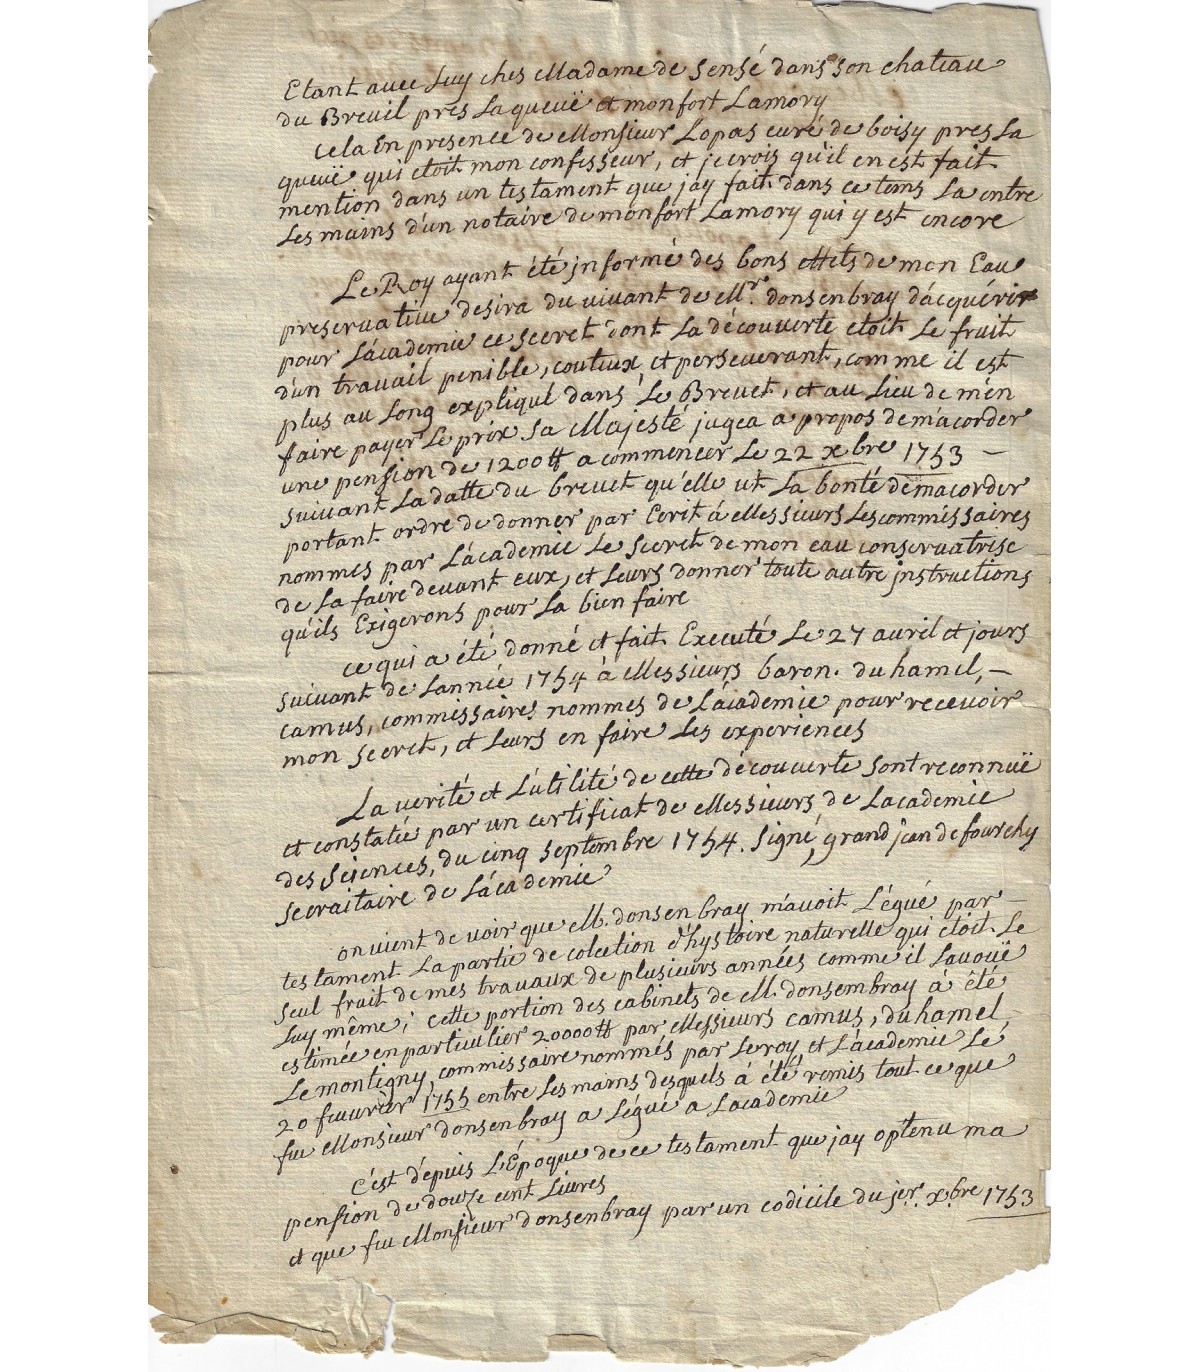 Etant avec Luy ches Madame de Sensé dans son chateau
du Breuil pres La queuë et monfort Lamory
cela En presence de Monsieur Lopas curé de boisy pres La
queue qui etoit mon confesseur, et je crois qu'il en est fait
mention dans un testament que jay fait dans ce tems La entre
Les mains d'un notaire de monfort Lamory qui y est encore
Le Roy ayant été jnformé des bons effets de mon Eau
preservative desira du vivant de Mr. donsenbray d'acquérir
pour L'academie ce secret dont La découverte etoit Le fruit
d'un travail penible, couteux, et perseverant, comme il est
plus au Long expliqué dans Le Brevet, et au Lieu de m'en
faire payer Le prix sa Majesté jugea a propos de m'acorder
une pension de 1200₶ a commencer Le 22 xbre 1753 –
suivant La datte du brevet qu'elle ut La bonté de m'acorder
portant ordre de donner par Ecrit á Messieurs Les commissaires
nommes par L'academie Le secret de mon eau conservatrise
de La faire devant eux, et Leurs donner toute autre jnstructions
qu'ils Exigerons pour La bien faire
ce qui a été donné et fait Executé Le 27 avril et jours
suivant de Lannié 1754 à Messieurs baron. duhamel, –
camus, commissaires nommes de L'academie pour recevoir
mon secret, et Leurs en faire Les experiences
La verité et L'utilité de cette découverte sont reconnuë
et constatée par un certificat de Messieurs de Lacademie
des sciences, du cinq septembre 1754. signé, grand jean de fourchy
secraitaire de L'academie
on vient de voir que M. donsenbray m'avoit L'égué par –
testament La partie de colection d'hystoire naturelle qui etoit Le
seul fruit de mes travaux de plusieurs années comme il L'avouë
Luy même; cette portion des cabinets de M. donsembray à été
estimée en particulier 20000₶ par Messieurs camus, duhamel,
Le montigny, commissaire nommés par Le roy, et L'academie Lé
20 fevvrier 1755 entre Les mains desquels á été remis tout ce que
fu Monsieur donsenbray a Légué a Lacademie
c'est d'epuis L'Epoque de ce testament que jay optenu ma
pension de douze cent Livres
et que fu Monsieur donsenbray par un codicile du jer. x.bre 1753